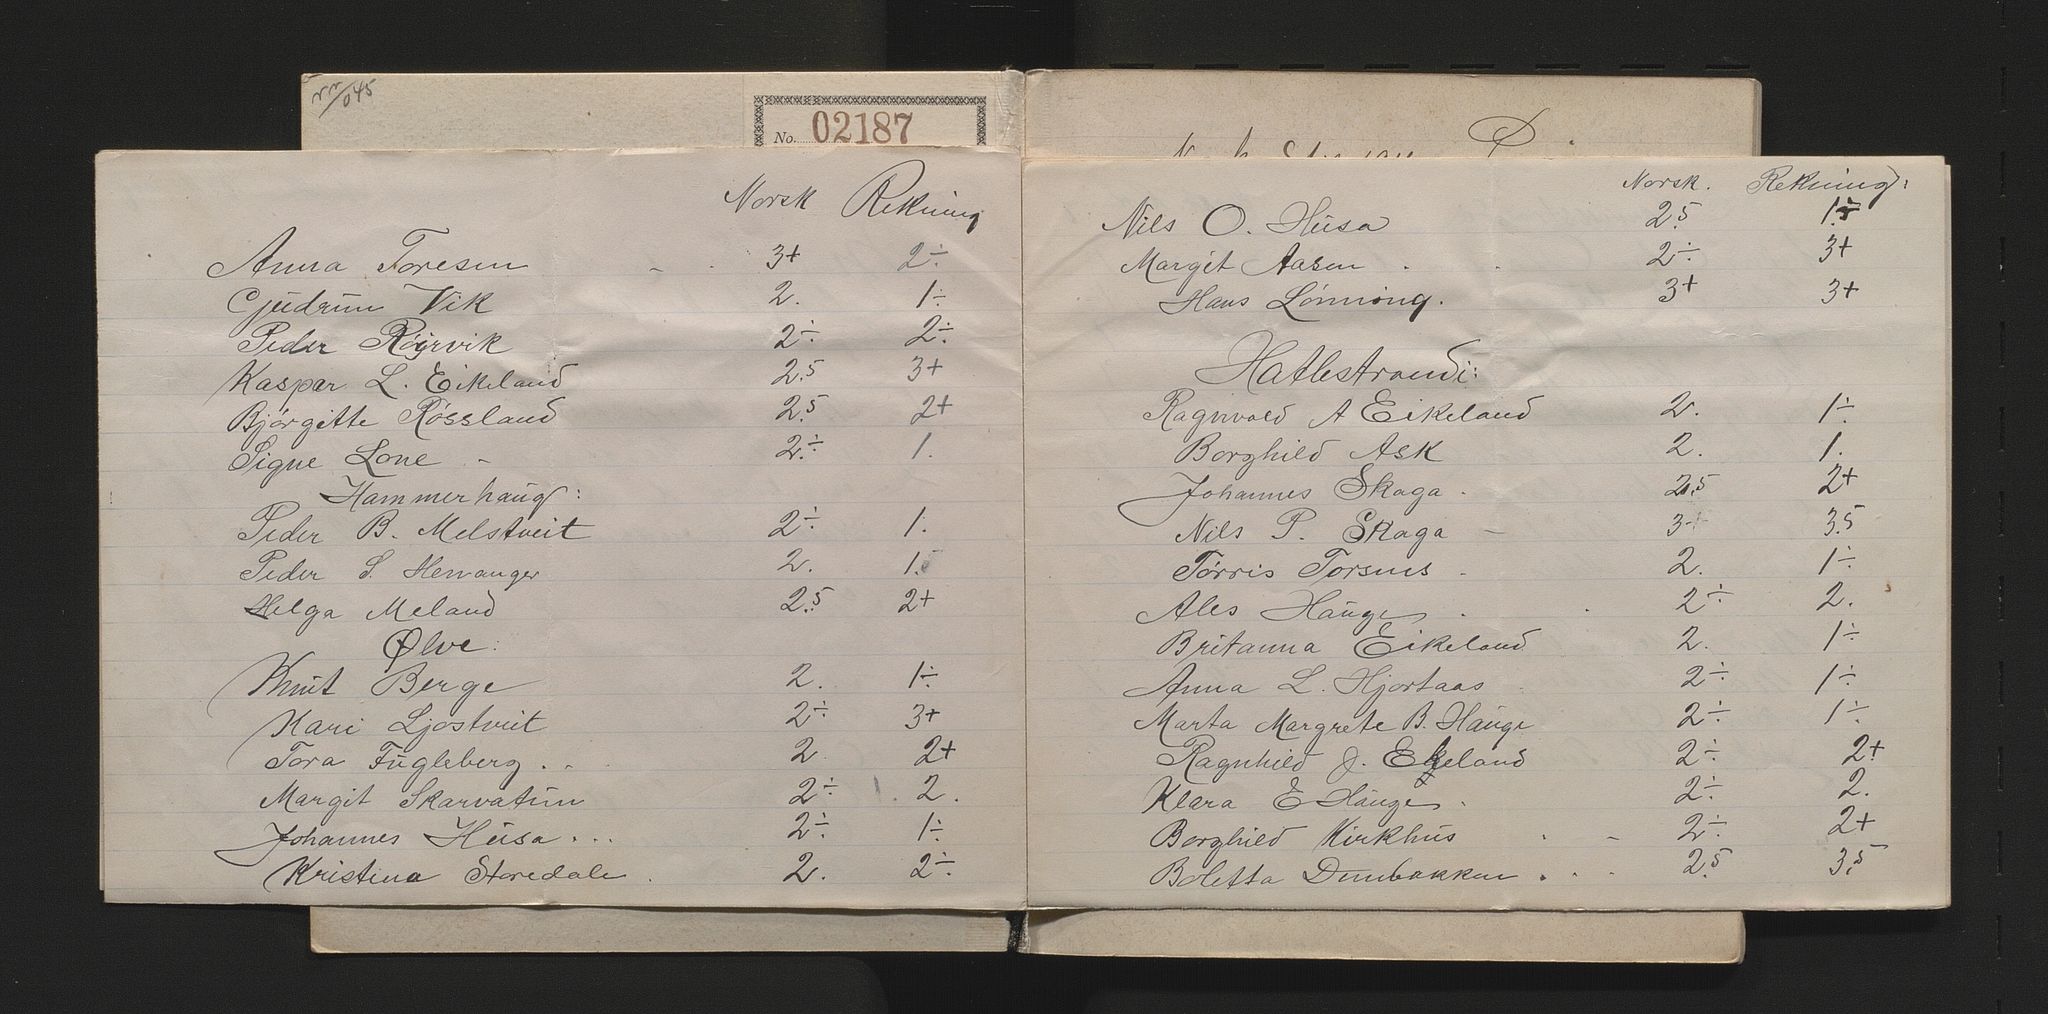 No. 02187
Norsk Rekning
Anna Toresen - . 3+ 2÷
Gjudrun Vik 2. 1÷
Peder Röyrvik 2÷ 2÷
Kaspar L. Eikeland 2.5 3+
Bjørgitte Røssland 2.5 2+
Signe Lone - 2÷ 1.
Hammerhaug:
Peder B. Melstveit 2÷ 1.
Peder S. Hervanger 2. 1.5
Helga Meland 2.5 2+
Ølve:
Knut Berge 2. 1÷
Kari Ljostveit 2÷ 3+
Tora Fugleberg . . 2 2+
Margit Skarvatun 2÷ 2.
Johannes Husa . . . 2÷ 1÷
Kristina Storedale . 2. 2÷
Norsk. Rekning:
Nils O. Husa 2.5 1.5
Margit Aasen . . 2÷ 3+
Hans Lönning. 3+ 3+
Hatlestrandi:
Ragnvald A Eikeland 2. 1÷
Borghild Ask 2. 1.
Johannes Skaga . 2.5 2+
Nils P. Skaga - 3+ 3.5
Tørris Torsnes . 2. 1÷
Ales Hauge . . 2÷ 2.
Britanna Eikeland 2. 1÷
Anna L. Hjortaas 2÷ 1÷
Marta Margrete B. Hauge 2÷ 1÷
Ragnhild J. Eikeland 2÷ 2+
Klara E Hauge . 2÷ 2.
Borghild Kirkhus . - 2÷ 2+
Boletta Dembakken . . . 2.5 3.5